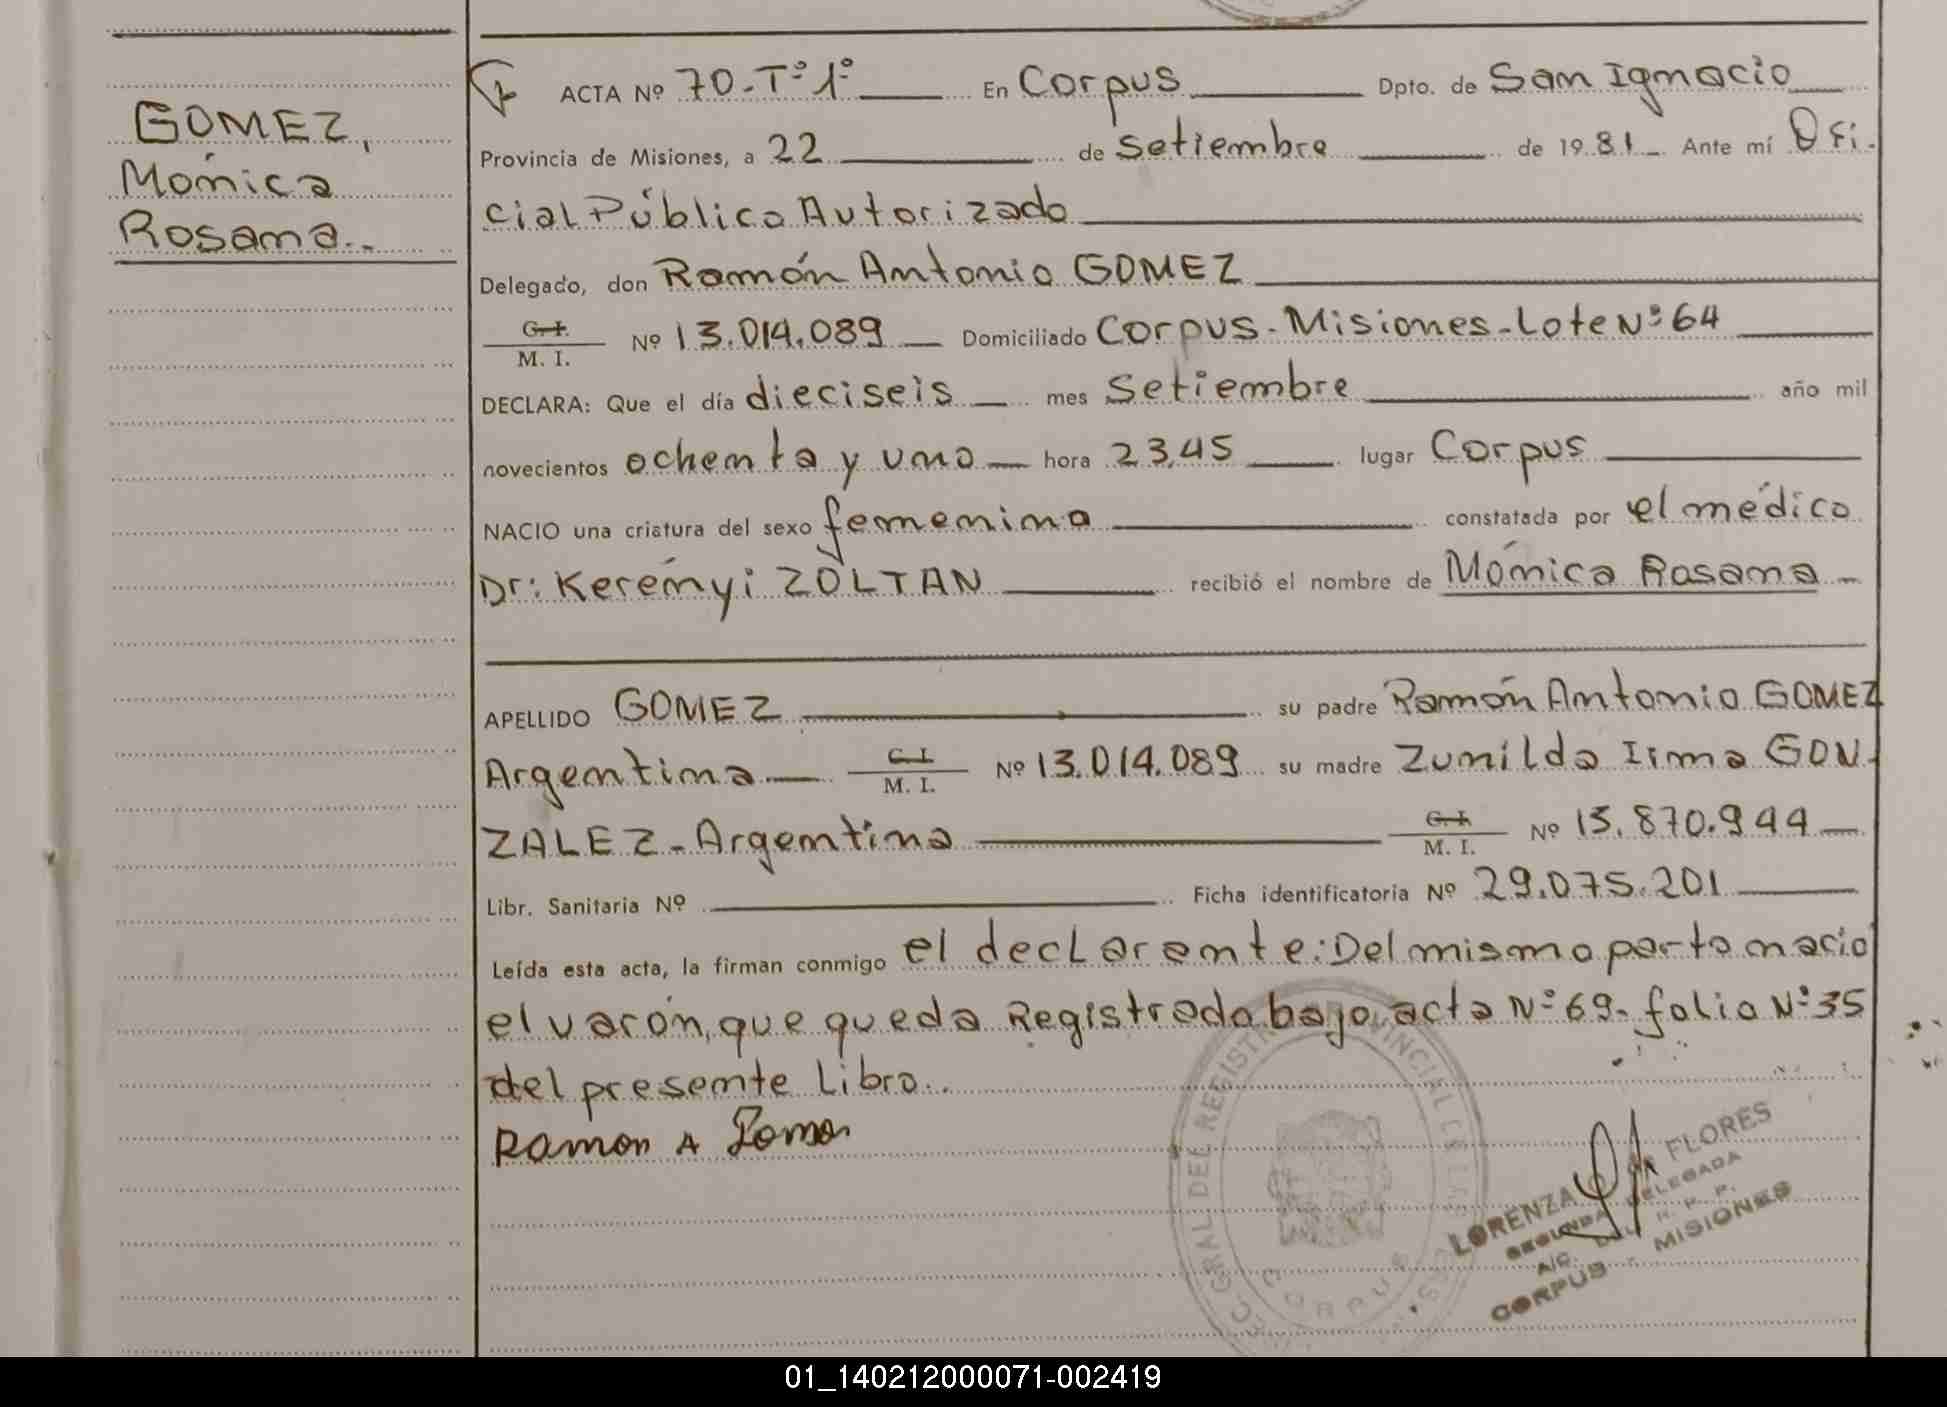 GOMEZ,
Mónica
Rosana.-
ACTA Nº 70-Tº1º En Corpus Dpto. de San Ignacio
Provincia de Misiones, a 22 de Setiembre de 1981 Ante mí Ofi.
cial Público Autorizado
Delegado, don Ramón Antonio GOMEZ
C. I.
M. I. Nº 13.014.089 Domiciliado Corpus-Misiones-Lote Nº 64
DECLARA: Que el día dieciseis mes Setiembre año mil
novecientos ochenta y uno hora 23,45 lugar Corpus
NACIO una criatura del sexo femenina constatada por el médico
Dr: Kerényi ZOLTAN recibió el nombre de Mónica Rosana
APELLIDO GOMEZ su padre Ramón Antonio GOMEZ
Argentina C. I. M. I. Nº 13.014.089 su madre Zunilda Irma GON-
ZALEZ-Argentina C. I. M. I. Nº 13.870.944
Libr. Sanitaria Nº Ficha identificatoria Nº 29.075.201
Leída esta acta, la firman conmigo el declarante: Del mismo parto nacio
el varón, que queda Registrado bajo acta Nº 69- folio Nº 35
del presente Libro..
Ramon A Gomez
GRAL DEL REGISTRO PROVINCIAL DE LAS
CORPUS
LORENZA FLORES
SEGUNDA DELEGADA
A/C. DEL R. P. P.
CORPUS - MISIONES
01_140212000071-002419